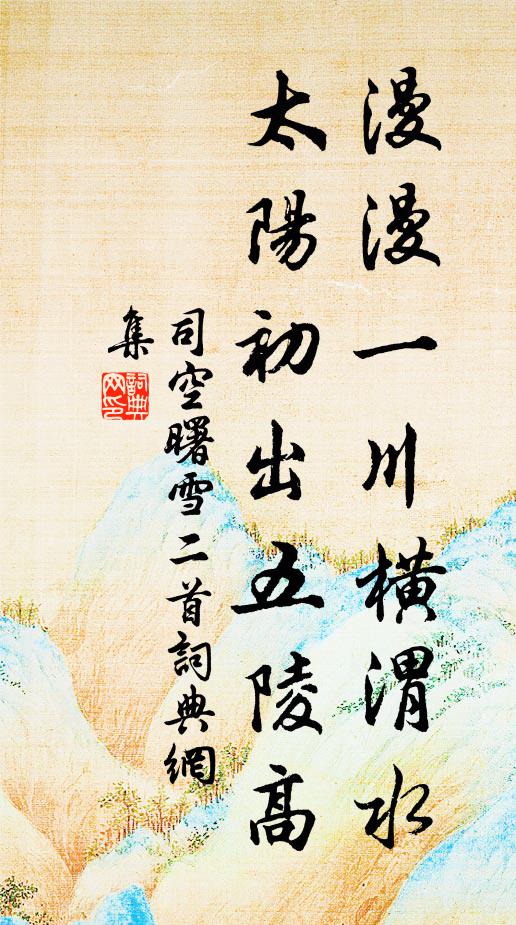 漫漫一川橫渭水
太陽初出五陵高
司空曙雪二首詞典網
集
詞典網印